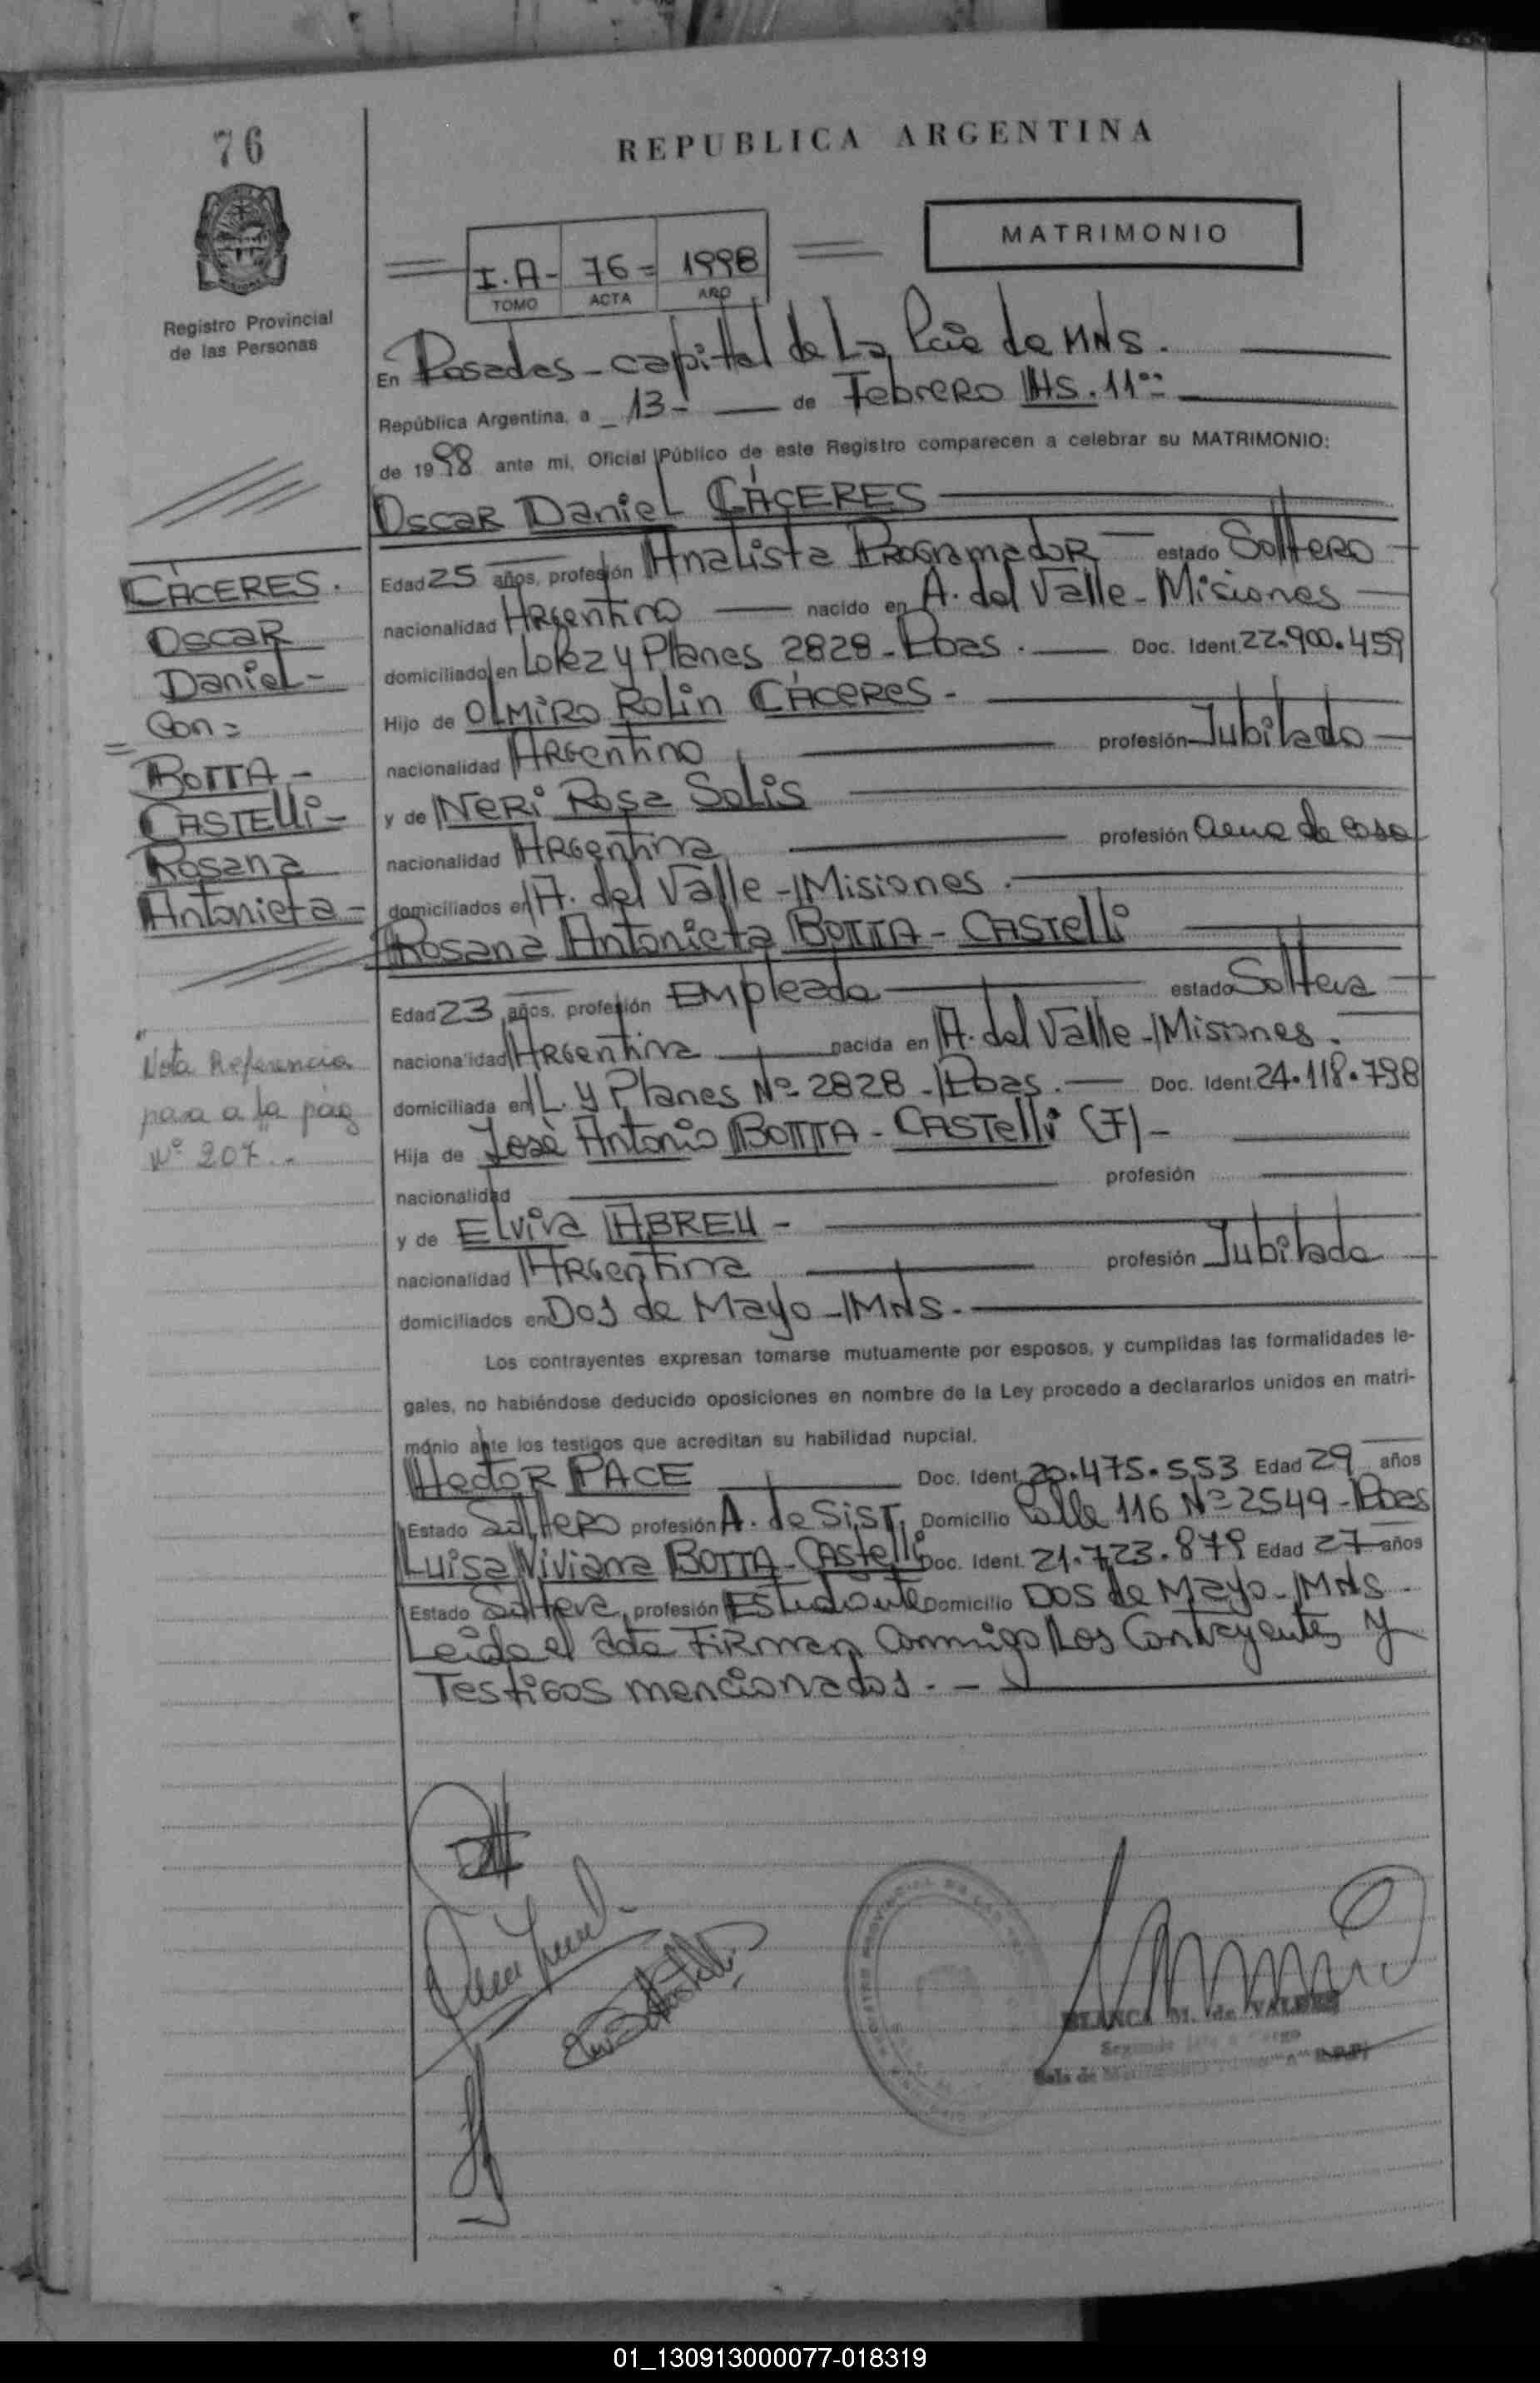 76
REPUBLICA ARGENTINA
MATRIMONIO
I.A- 76= 1998
TOMO ACTA AÑO
Registro Provincial
de las Personas
En Posadas - capital de La Pcia de MNS.
República Argentina, a 13- de Febrero HS. 11
de 1998 ante mi, Oficial Público de este Registro comparecen a celebrar su MATRIMONIO:
Oscar Daniel CÁCERES
Edad 25 años, profesión Analista Programador estado Soltero
nacionalidad Argentino nacido en A. del Valle - Misiones
domiciliado en Lopez y Planes 2828 - Pdas. Doc. Ident. 22.900.459
Hijo de OLMIRO Rolin CÁCERES -
nacionalidad Argentino profesión Jubilado
y de Neri Rosa Solis
nacionalidad Argentina profesión ama de casa
domiciliados en A. del Valle - Misiones.
Rosana Antonieta BOTTA - CASTelli
Edad 23 años, profesión Empleada estado Soltera
nacionalidad Argentina nacida en A. del Valle - Misiones.
domiciliada en L. y Planes Nº 2828 - Pdas. Doc. Ident. 24.118.798
Hija de José Antonio BOTTA - CASTelli (F) -
nacionalidad profesión
y de Elvira ABREU -
nacionalidad Argentina profesión Jubilada
domiciliados en Dos de Mayo - MNS.
Los contrayentes expresan tomarse mutuamente por esposos, y cumplidas las formalidades le-
gales, no habiéndose deducido oposiciones en nombre de la Ley procedo a declararlos unidos en matri-
monio ante los testigos que acreditan su habilidad nupcial.
Hector PACE Doc. Ident. 20.475.553 Edad 29 años
Estado Soltero profesión A. de SisT. Domicilio Calle 116 Nº 2549 - Pdas
Luisa Viviana BOTTA - CASTelli Doc. Ident. 21.723.879 Edad 27 años
Estado Soltera, profesión Estudiante Domicilio Dos de Mayo - MNS -
Leida el acta Firman conmigo Los Contrayentes y
Testigos mencionados. -
CÁCERES.
Oscar
Daniel -
Con =
BOTTA -
CASTElli -
Rosana
Antonieta -
"Nota Referencia
pasa a la pág
Nº 207" . -
BLANCA M. de VALDES
01_130913000077-018319